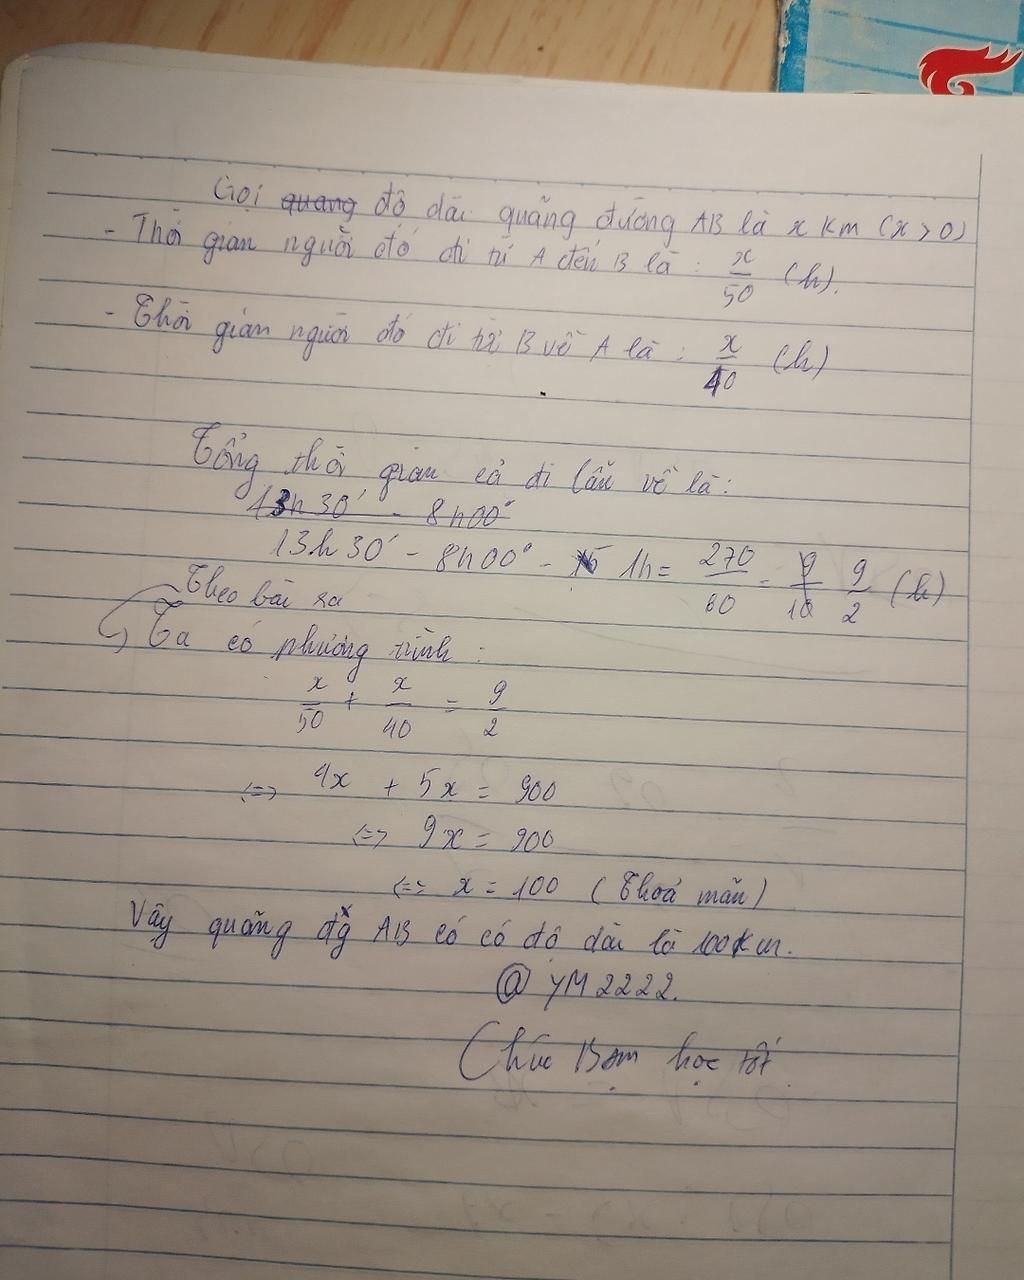 Gọi quang độ dài quãng đường AB là x km (x > 0)
- Thời gian người đó đi từ A đến B là : x/50 (h).
- Thời gian người đó đi từ B về A là : x/40 (h)
Tổng thời gian cả đi lẫn về là :
13h 30' - 8h00'
13h 30' - 8h00' - 1h = 270/60 = 9/10 9/2 (h)
Theo bài ra
Ta có phương trình :
x/50 + x/40 = 9/2
<=> 4x + 5x = 900
<=> 9x = 900
<=> x = 100 ( Thoả mãn )
Vậy quãng đg AB có có độ dài là 100km.
@ YM2222.
Chúc Bạn học tốt